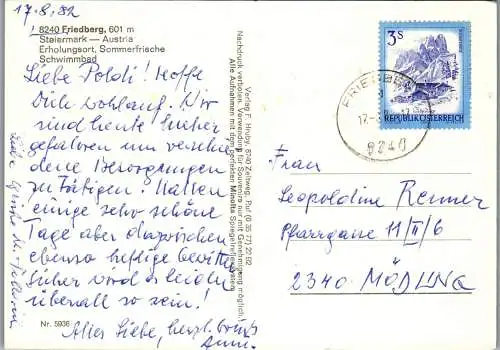 17.8.82
8240 Friedberg, 601 m
Steiermark — Austria
Erholungsort, Sommerfrische
Schwimmbad
Liebe Poldi! Hoffe
Dich wohlauf. Wir
sind heute hieher
gefahren um verschie
dene Besorgungen
zu tätigen! Hatten
einige sehr schöne
Tage aber dazwischen
ebenso heftige Gewitter
wird es leider
überall so sein!
Alles Liebe, herzl.
Nr. 5936
Verlag F. Hruby, 8740 Zeltweg, Ruf (0 35 77) 25 92
Nachdruck verboten. Verwendung für Souvenirs nur mit Genehmigung möglich.
Alle Aufnahmen mit dem perfekten Minolta Spiegelreflexsystem
3 S
REPUBLIK ÖSTERREICH
FRIEDBERG
8240
Frau
Leopoldine Renner
Pfarrgasse 11/II/6
2340 MÖDLING